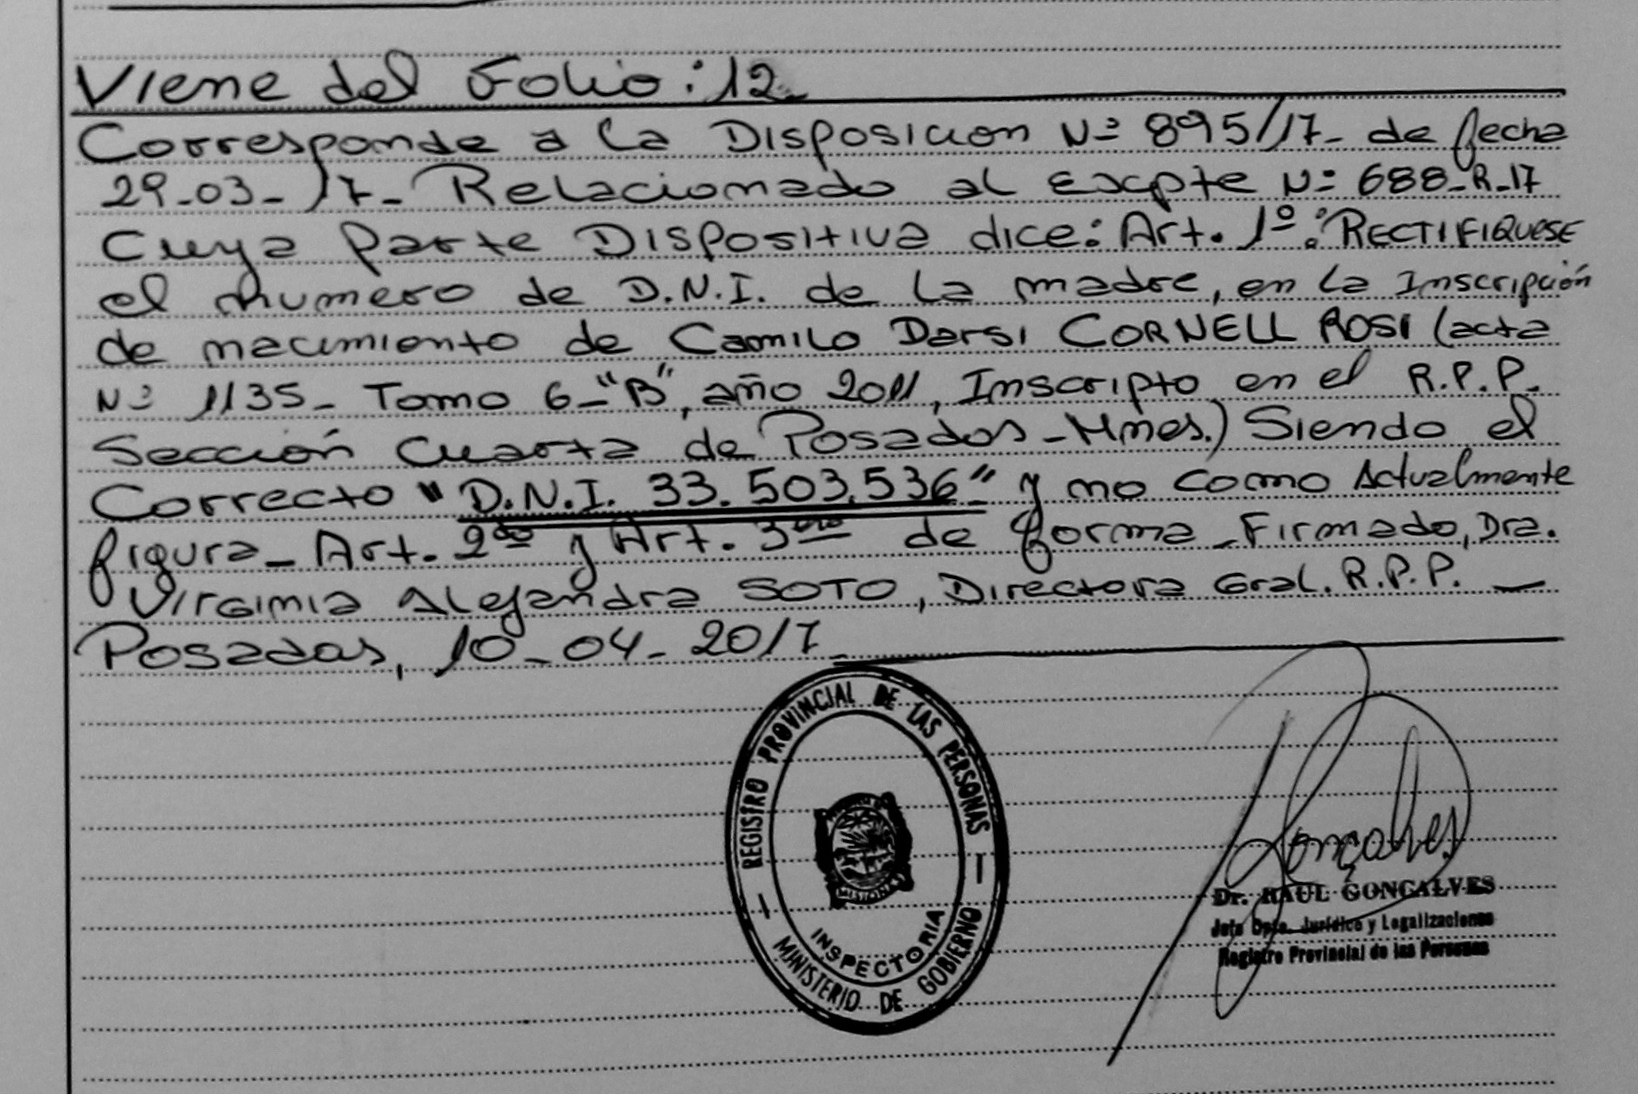 Viene del Folio: 12
Corresponde a la Disposicion Nº 895/17- de fecha
29-03-17- Relacionado al Excpte Nº 688-R-17
Cuya parte Dispositiva dice: Art. 1º: RECTIFIQUESE
el numero de D.N.I. de la madre, en la Inscripción
de nacimiento de Camilo Darsi CORNELL ROSI (acta
Nº 1135- Tomo 6-"B", año 2011, Inscripto en el R.P.P.
Sección Cuarta de Posadas-Mnes.) Siendo el
Correcto "D.N.I. 33.503.536" y no como Actualmente
figura- Art. 2do y Art. 3ero de forma - Firmado, Dra.
Virginia Alejandra SOTO, Directora Gral. R.P.P. -
Posadas, 10-04-2017
REGISTRO PROVINCIAL DE LAS PERSONAS
MISIONES
INSPECTORIA
MINISTERIO DE GOBIERNO
Gonçalves
Dr. RAUL GONÇALVES
Jefe Dpto. Jurídico y Legalizaciones
Registro Provincial de las Personas